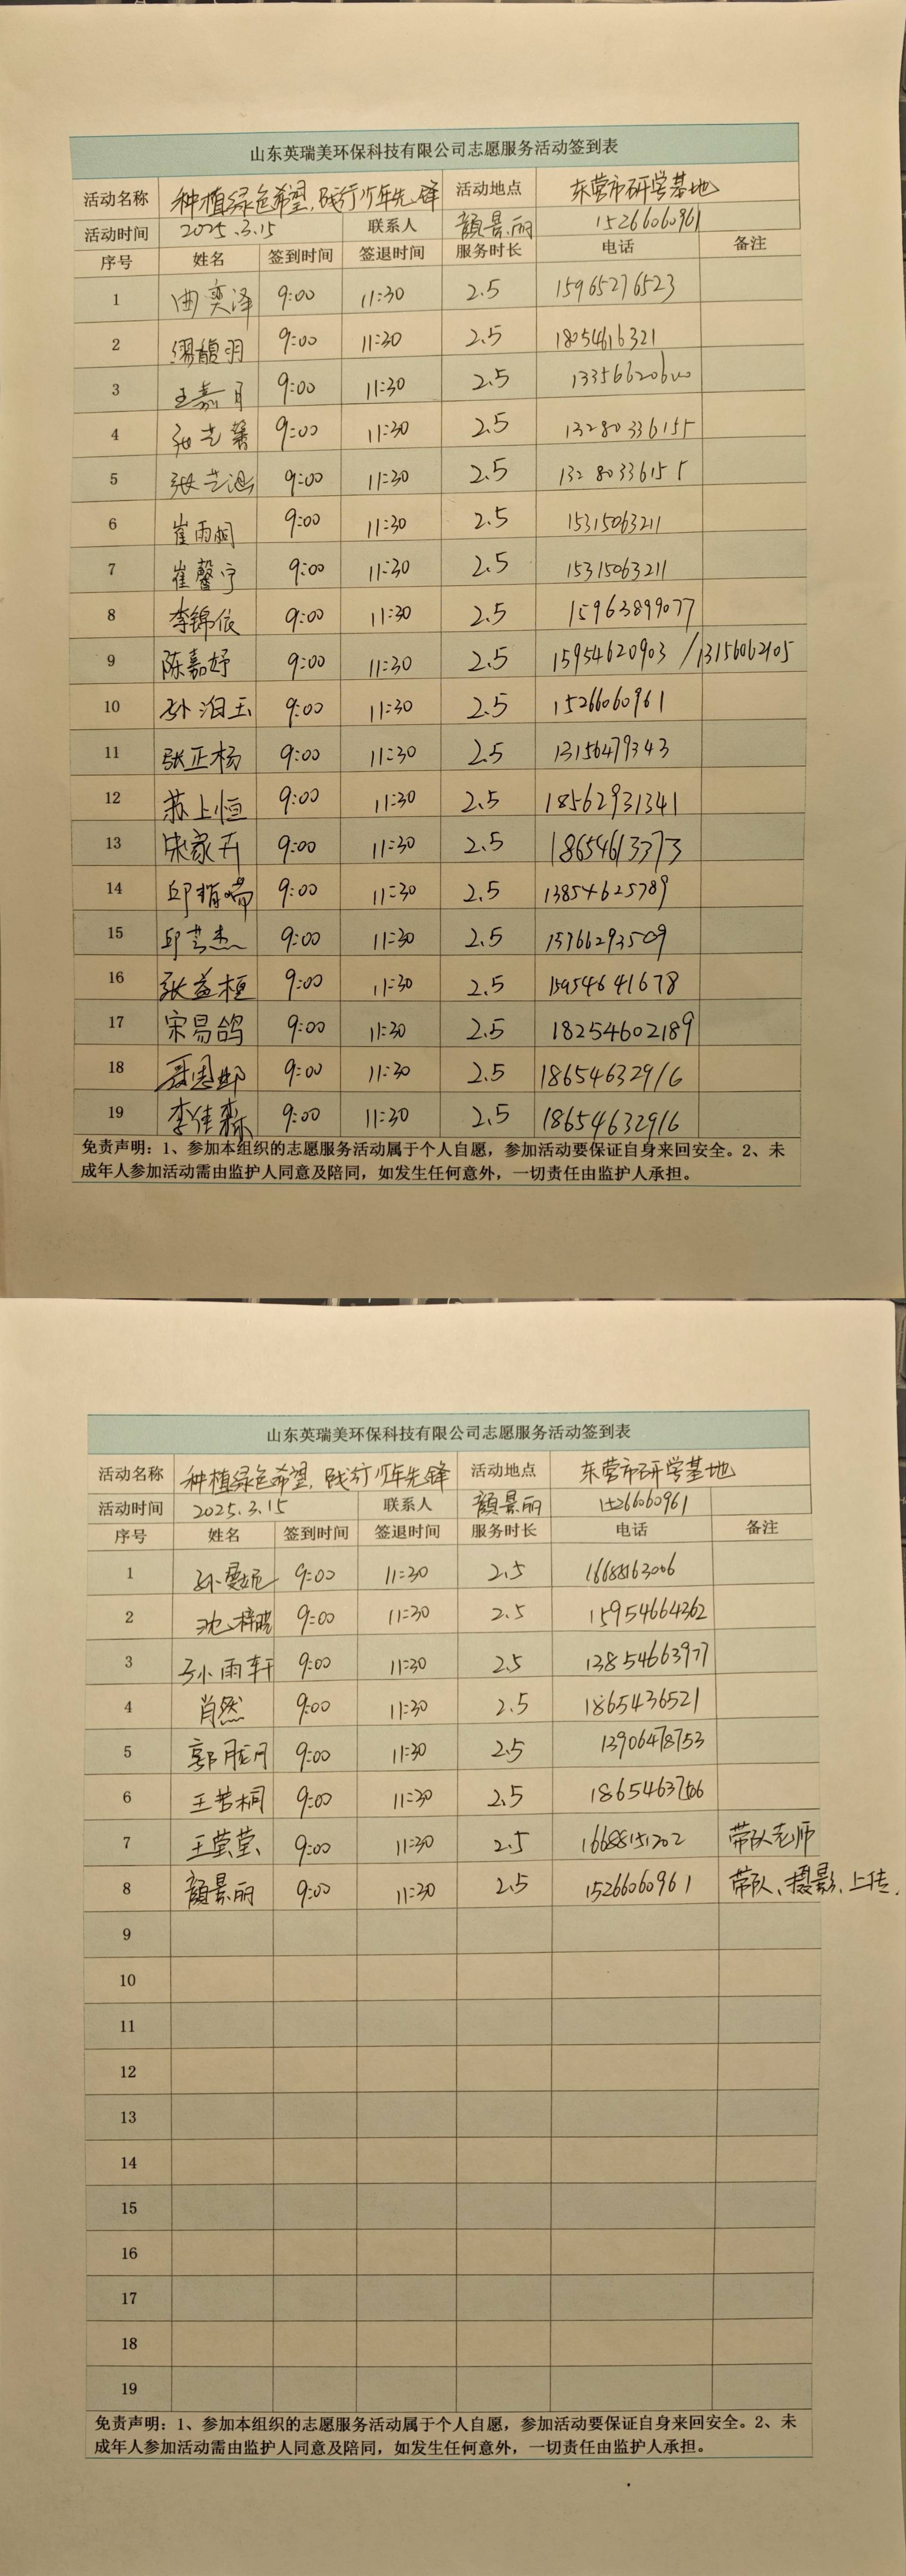 山东英瑞美环保科技有限公司志愿服务活动签到表
活动名称 种植绿色希望，践行少年先锋 活动地点 东营市研学基地
活动时间 2025.3.15 联系人 颜景丽 15266060961
序号 姓名 签到时间 签退时间 服务时长 电话 备注
1 曲奕泽 9:00 11:30 2.5 15965276523
2 9:00 11:30 2.5 18054616321
3 王嘉月 9:00 11:30 2.5
4 张艺馨 9:00 11:30 2.5 13280336155
5 张艺涵 9:00 11:30 2.5 13280336155
6 崔雨桐 9:00 11:30 2.5 15315063211
7 崔馨宁 9:00 11:30 2.5 15315063211
8 李锦依 9:00 11:30 2.5 15963899077
9 陈嘉妤 9:00 11:30 2.5 15954620903 /13156062105
10 孙泊玉 9:00 11:30 2.5 15266060961
11 张正杨 9:00 11:30 2.5 13156479343
12 苏上恒 9:00 11:30 2.5 18562931341
13 宋家卉 9:00 11:30 2.5 18654613373
14 9:00 11:30 2.5 13854625789
15 9:00 11:30 2.5 15766293509
16 张益桓 9:00 11:30 2.5 15954641678
17 宋易鸽 9:00 11:30 2.5 18254602189
18 9:00 11:30 2.5 18654632916
19 李佳霖 9:00 11:30 2.5 18654632916
免责声明：1、参加本组织的志愿服务活动属于个人自愿，参加活动要保证自身来回安全。2、未
成年人参加活动需由监护人同意及陪同，如发生任何意外，一切责任由监护人承担。
山东英瑞美环保科技有限公司志愿服务活动签到表
活动名称 种植绿色希望，践行少年先锋 活动地点 东营市研学基地
活动时间 2025.3.15 联系人 颜景丽 15266060961
序号 姓名 签到时间 签退时间 服务时长 电话 备注
1 孙蔓妮 9:00 11:30 2.5 16688163006
2 沈梓晓 9:00 11:30 2.5 15954664362
3 孙雨轩 9:00 11:30 2.5 13854663977
4 肖然 9:00 11:30 2.5 1865436521
5 9:00 11:30 2.5 13906478753
6 王若桐 9:00 11:30 2.5
7 王莹莹 9:00 11:30 2.5 16688151202 带队老师
8 颜景丽 9:00 11:30 2.5 15266060961 带队、摄影、上传.
9
10
11
12
13
14
15
16
17
18
19
免责声明：1、参加本组织的志愿服务活动属于个人自愿，参加活动要保证自身来回安全。2、未
成年人参加活动需由监护人同意及陪同，如发生任何意外，一切责任由监护人承担。